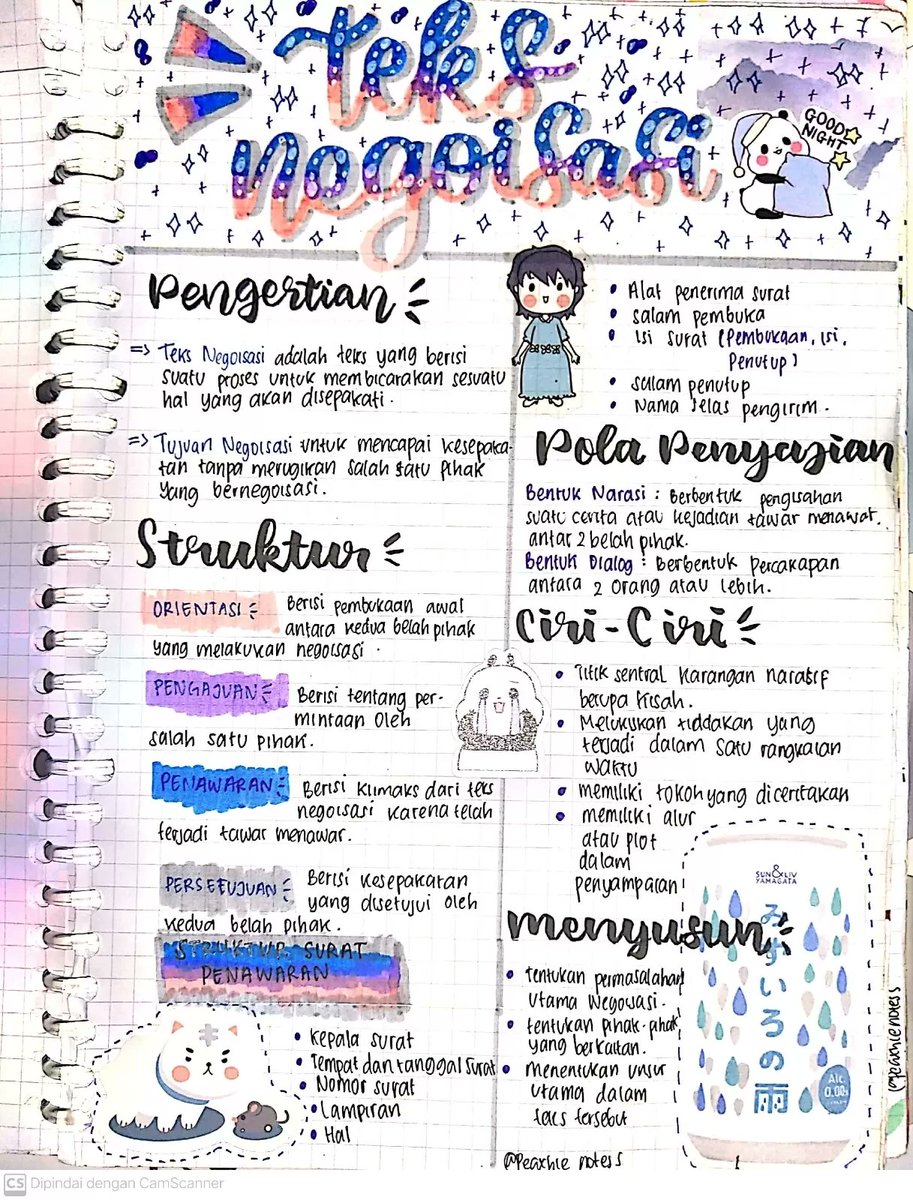 teks
negoisasi
GOOD
NIGHT
Pengertian
=> Teks Negoisasi adalah teks yang berisi
suatu proses untuk membicarakan sesuatu
hal yang akan disepakati.
=> Tujuan Negoisasi untuk mencapai kesepaka-
tan tanpa merugikan salah satu pihak
yang bernegoisasi.
Struktur
ORIENTASI Berisi pembukaan awal
antara kedua belah pihak
yang melakukan negoisasi.
PENGAJUAN Berisi tentang per-
mintaan oleh
salah satu pihak.
PENAWARAN Berisi klimaks dari teks
negoisasi karena telah
terjadi tawar menawar.
PERSETUJUAN Berisi kesepakatan
yang disetujui oleh
kedua belah pihak.
STRUKTUR SURAT
PENAWARAN
• Kepala surat
• Tempat dan tanggal surat
• Nomor surat
• Lampiran
• Hal
• Alat penerima surat
• salam pembuka
• isi surat (Pembukaan, isi,
Penutup)
• salam penutup
• Nama jelas pengirim.
Pola Penyajian
Bentuk Narasi : Berbentuk pengisahan
suatu cerita atau kejadian tawar menawar.
antar 2 belah pihak.
Bentuk Dialog : Berbentuk percakapan
antara 2 orang atau lebih.
Ciri-Ciri
• Titik sentral karangan naratif
berupa kisah.
• Melukiskan tiddakan yang
terjadi dalam satu rangkaian
waktu
• memiliki tokoh yang diceritakan
• memiliki alur
atau plot
dalam
penyampaian
menyusun
• tentukan permasalahan
Utama Negoisasi.
• tentukan pihak-pihak
yang berkaitan.
• menentukan unsur
utama dalam
teks tersebut
@Peachie notess
SUN&LIV
YAMAGATA
みずいろの雨
Alc.
0.00%
@peachie notess
CS Dipindai dengan CamScanner